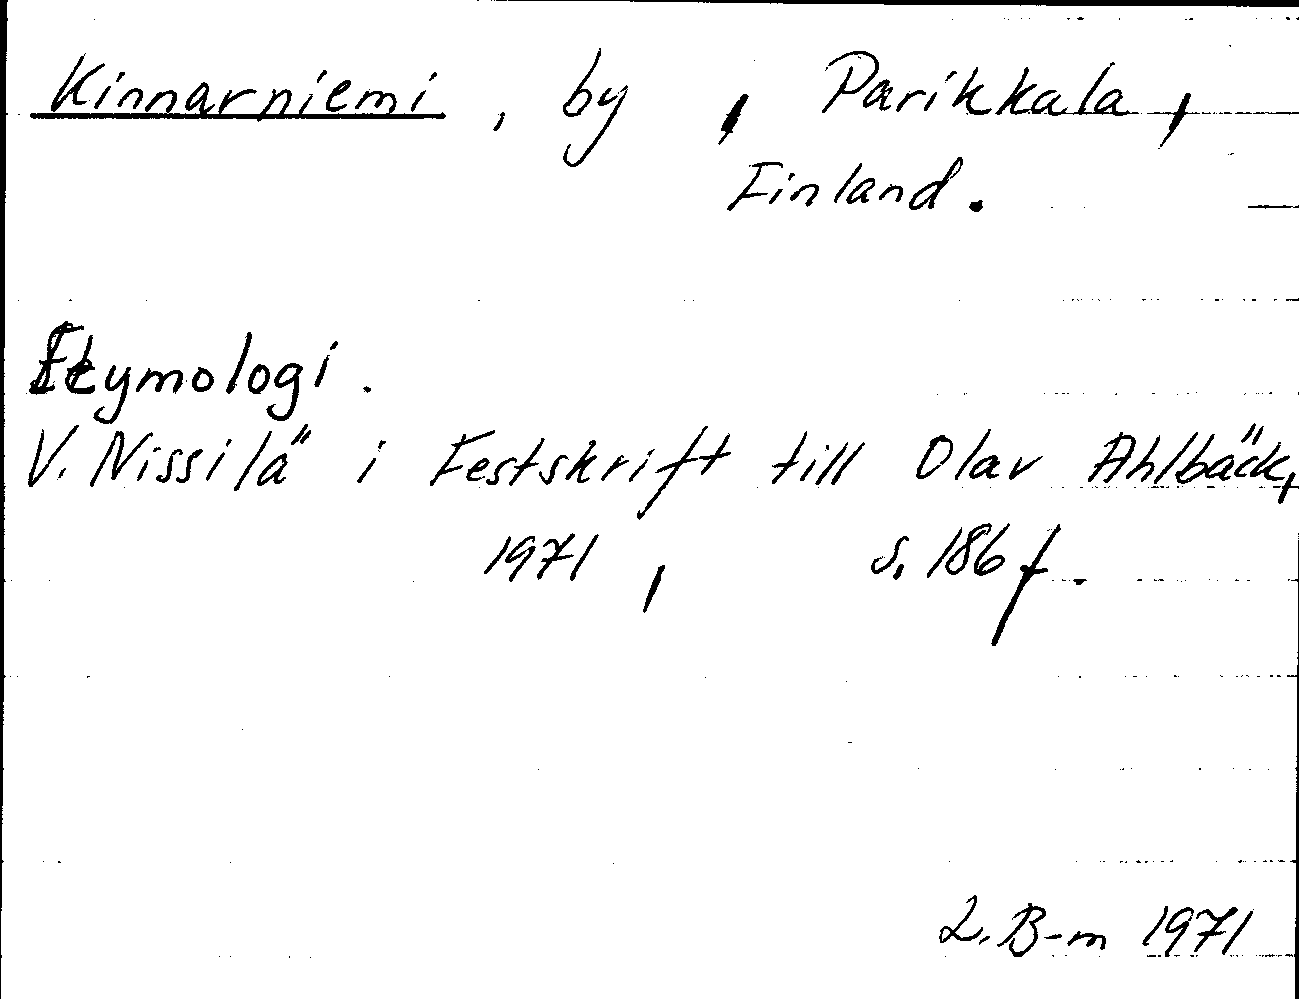 Kinnarniemi, by, Parikkala,
Finland.
Etymologi.
V. Nissilä i Festskrift till Olav Ahlbäck,
1971, s. 186 f.
L. B-m 1971